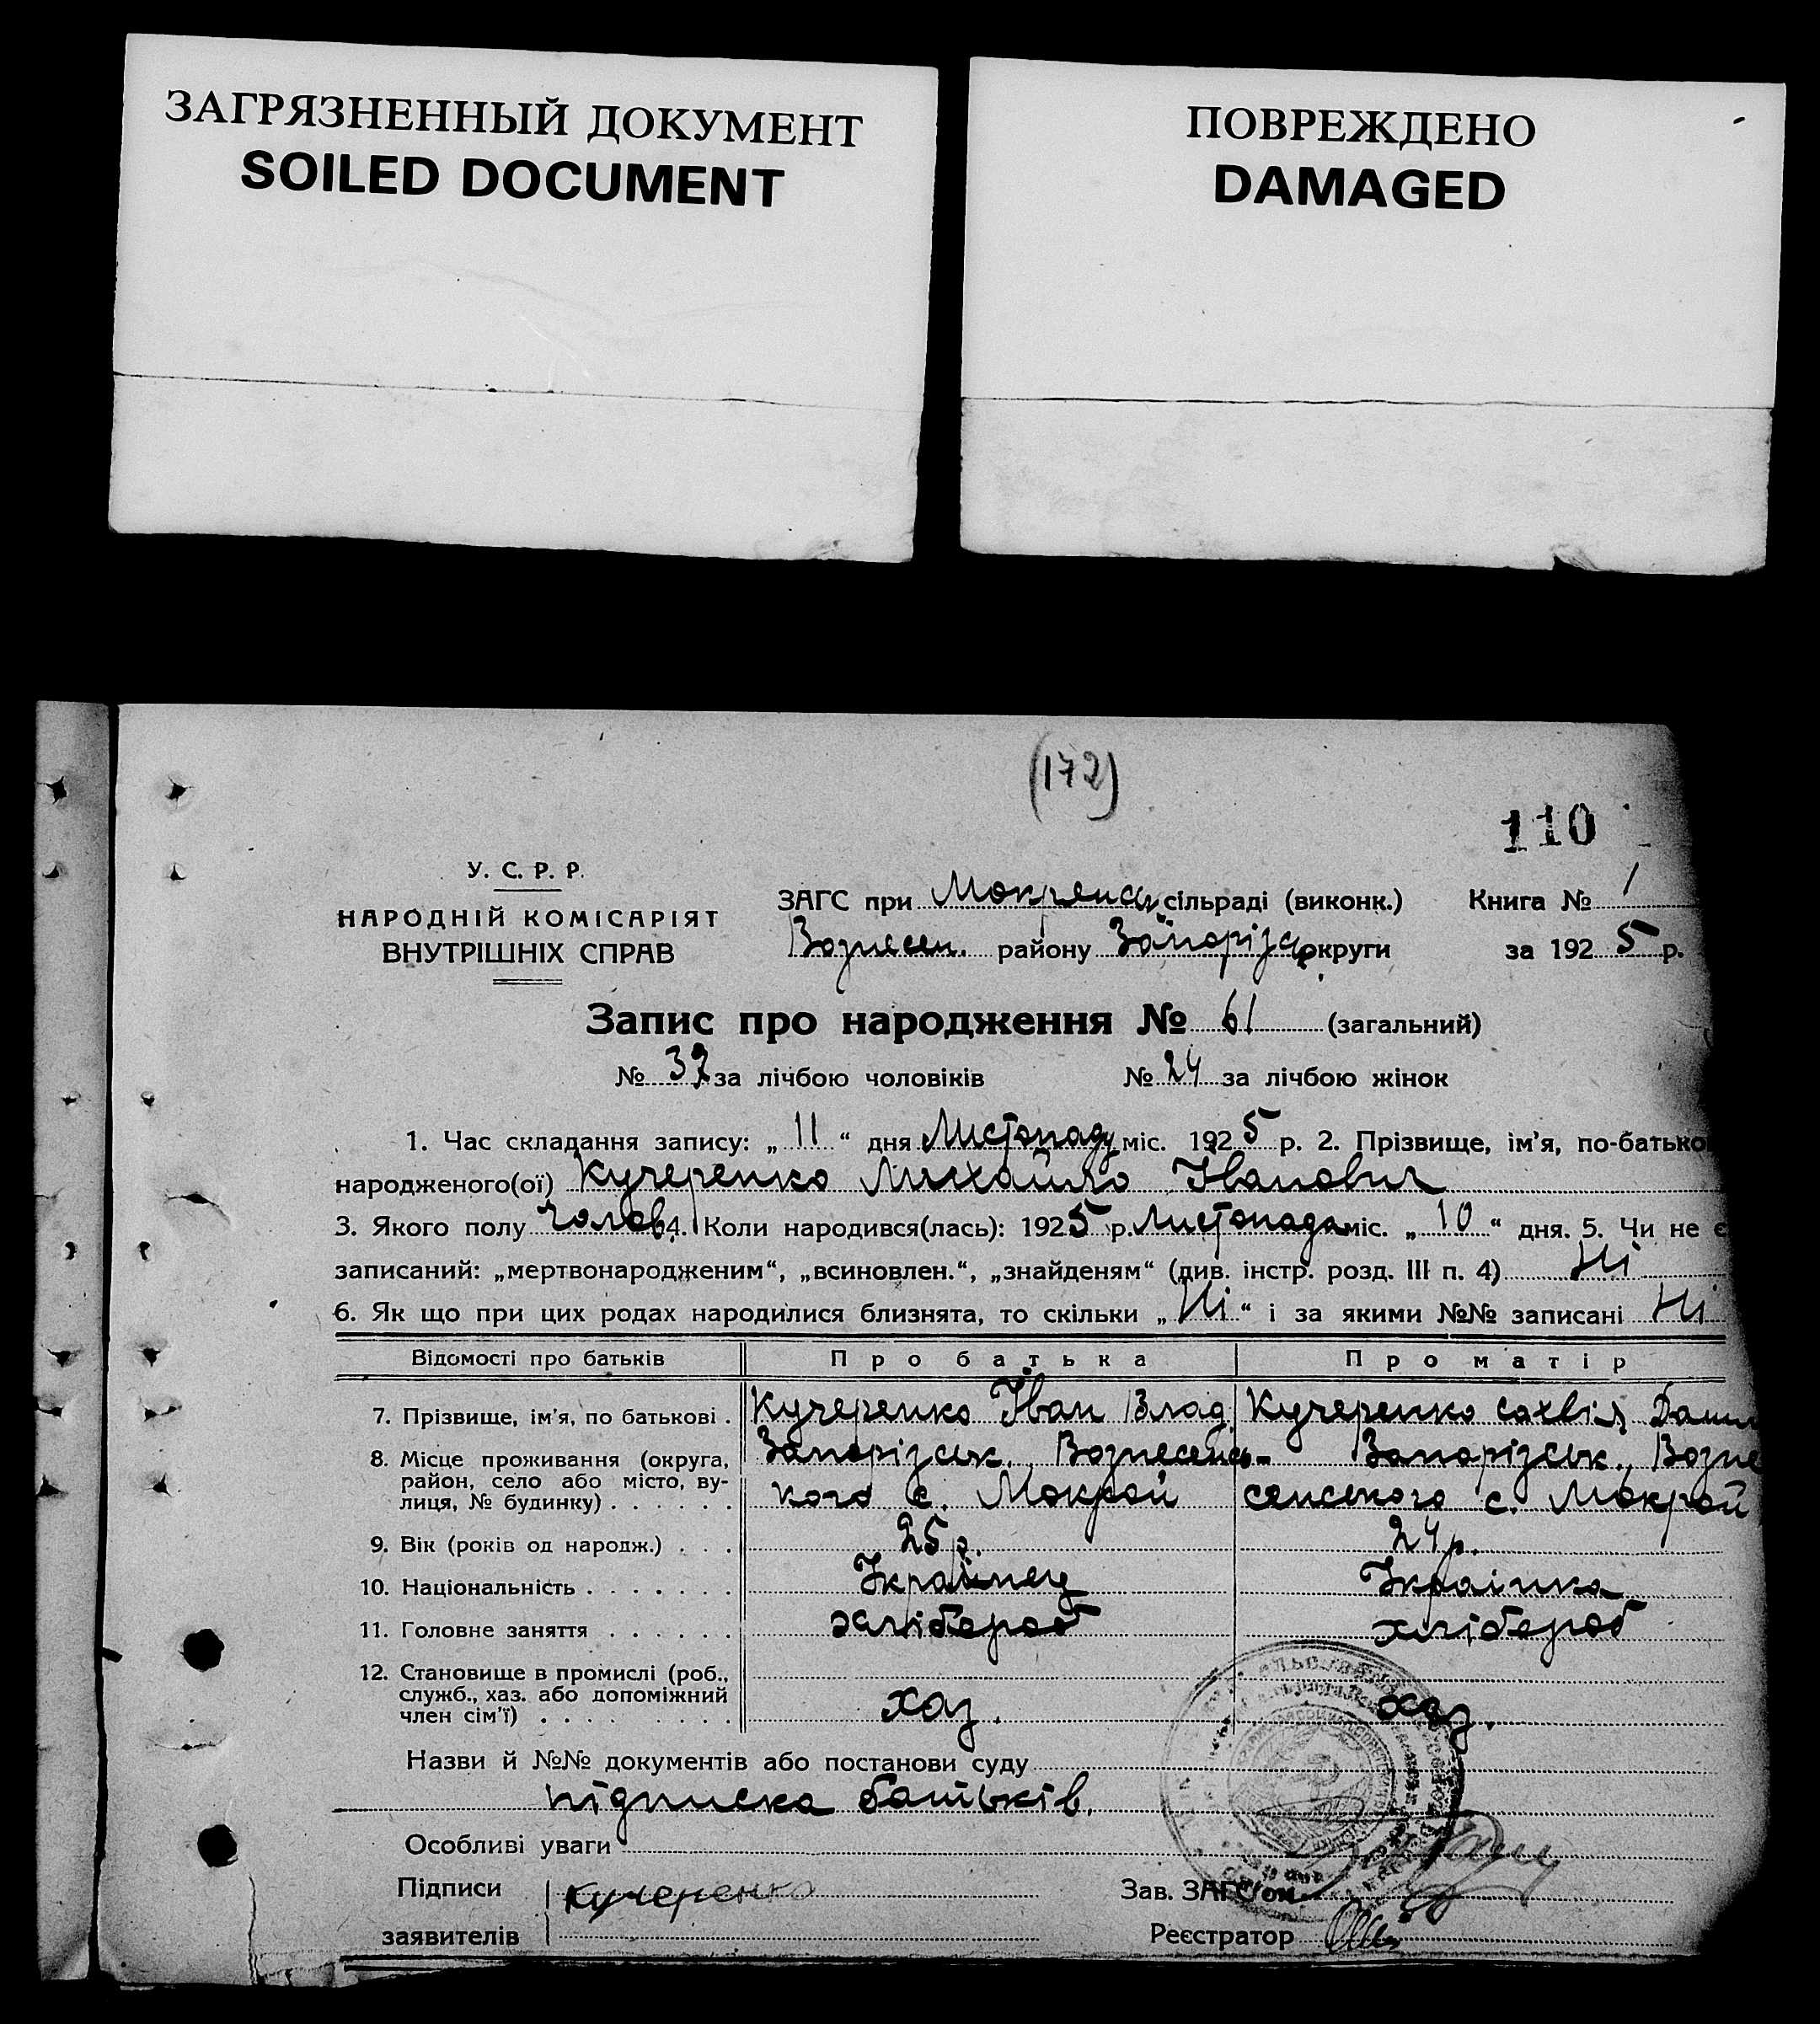 ЗАГРЯЗНЕННЫЙ ДОКУМЕНТ
SOILED DOCUMENT
ПОВРЕЖДЕНО
DAMAGED
(172)
110
У. С. Р. Р.
НАРОДНІЙ КОМІСАРІЯТ
ВНУТРІШНІХ СПРАВ
ЗАГС при Мокрянск сільраді (виконк.) Книга № 1
Вознесен. району Запорізс округи за 1925 р.
Запис про народження № 61 (загальний)
№ 37 за лічбою чоловіків № 24 за лічбою жінок
1. Час складання запису: „ 11 “ дня Листопаду міс. 1925 р. 2. Прізвище, ім’я, по-батько
народженого(ої) Кучеренко Михайло Іванович
3. Якого полу Чолов. 4. Коли народився(лась): 1925 р. Листопада міс. „ 10 “ дня. 5. Чи не є
записаний: „мертвонародженим“, „всиновлен.“, „знайденям“ (див. інстр. розд. III п. 4) Ні
6. Як що при цих родах народилися близнята, то скільки „ Ні “ і за якими №№ записані Ні
Відомості про батьків Про батька Про матір
7. Прізвище, ім’я, по батькові . Кучеренко Іван Влад Кучеренко Сахвія Данил
8. Місце проживання (округа, Запорізськ. Вознесенсь- Запорізськ., Возне
район, село або місто, ву-
лиця, № будинку) . . . . . . кого с. Мокрой сенського с. Мокрой
9. Вік (років од народж.) . . . 25 р. 24 р.
10. Національність . . . . . . . Українец Українка
11. Головне заняття . . . . . . хлібороб хлібороб
12. Становище в промислі (роб.,
служб., хаз. або допоміжний
член сім’ї) . . . . . . . . . хаз. хаз.
Назви й №№ документів або постанови суду
підписка батьків.
Особливі уваги
Підписи Кучеренко Зав. ЗАГС’ом
заявителів Реєстратор